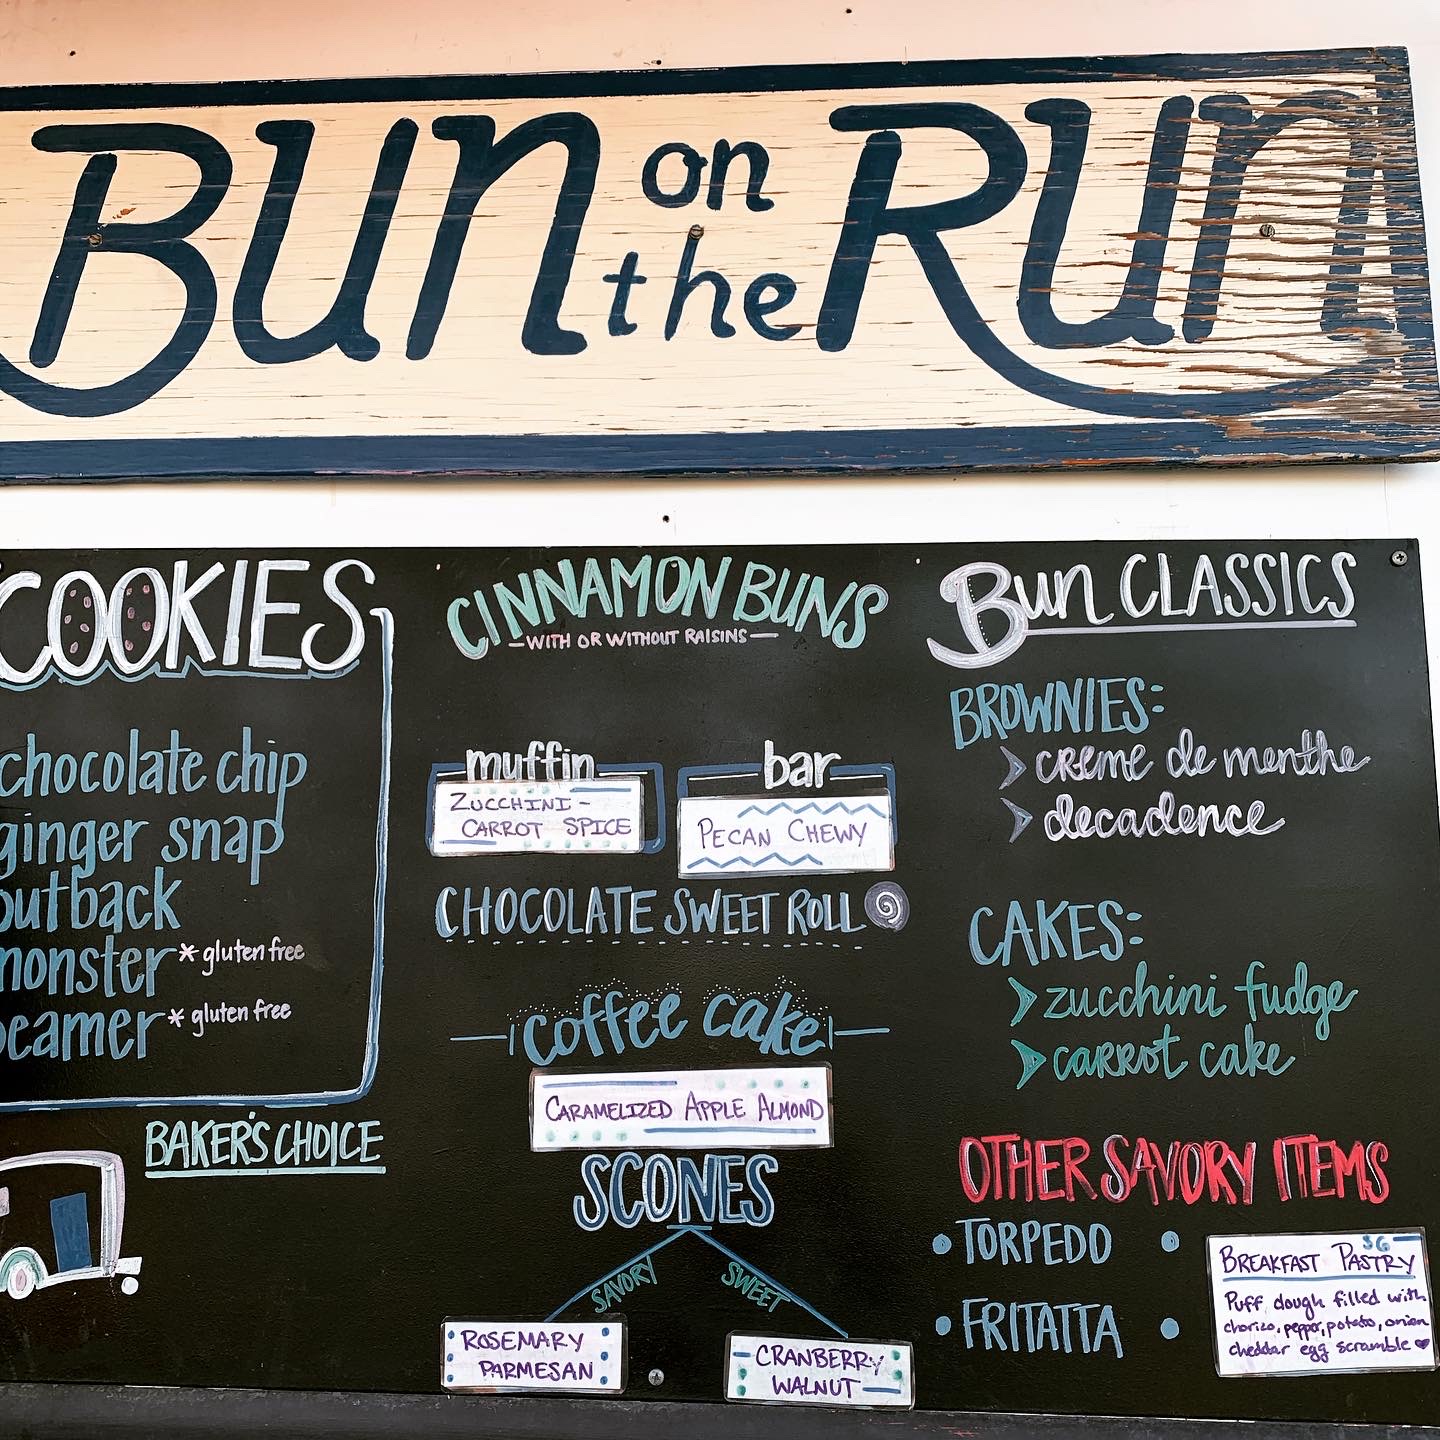 BUN on the RUN
COOKIES
chocolate chip
ginger snap
outback
monster * gluten free
beamer * gluten free
BAKER'S CHOICE
CINNAMON BUNS
- WITH OR WITHOUT RAISINS -
muffin
ZUCCHINI -
CARROT SPICE
bar
PECAN CHEWY
CHOCOLATE SWEET ROLL
coffee cake
CARAMELIZED APPLE ALMOND
SCONES
SAVORY
SWEET
ROSEMARY
PARMESAN
CRANBERRY
WALNUT
Bun CLASSICS
BROWNIES:
> creme de menthe
> decadence
CAKES:
> zucchini fudge
> carrot cake
OTHER SAVORY ITEMS
• TORPEDO •
• FRITATTA •
$6
BREAKFAST PASTRY
Puff dough filled with
chorizo, pepper, potato, onion
cheddar egg scramble ♥